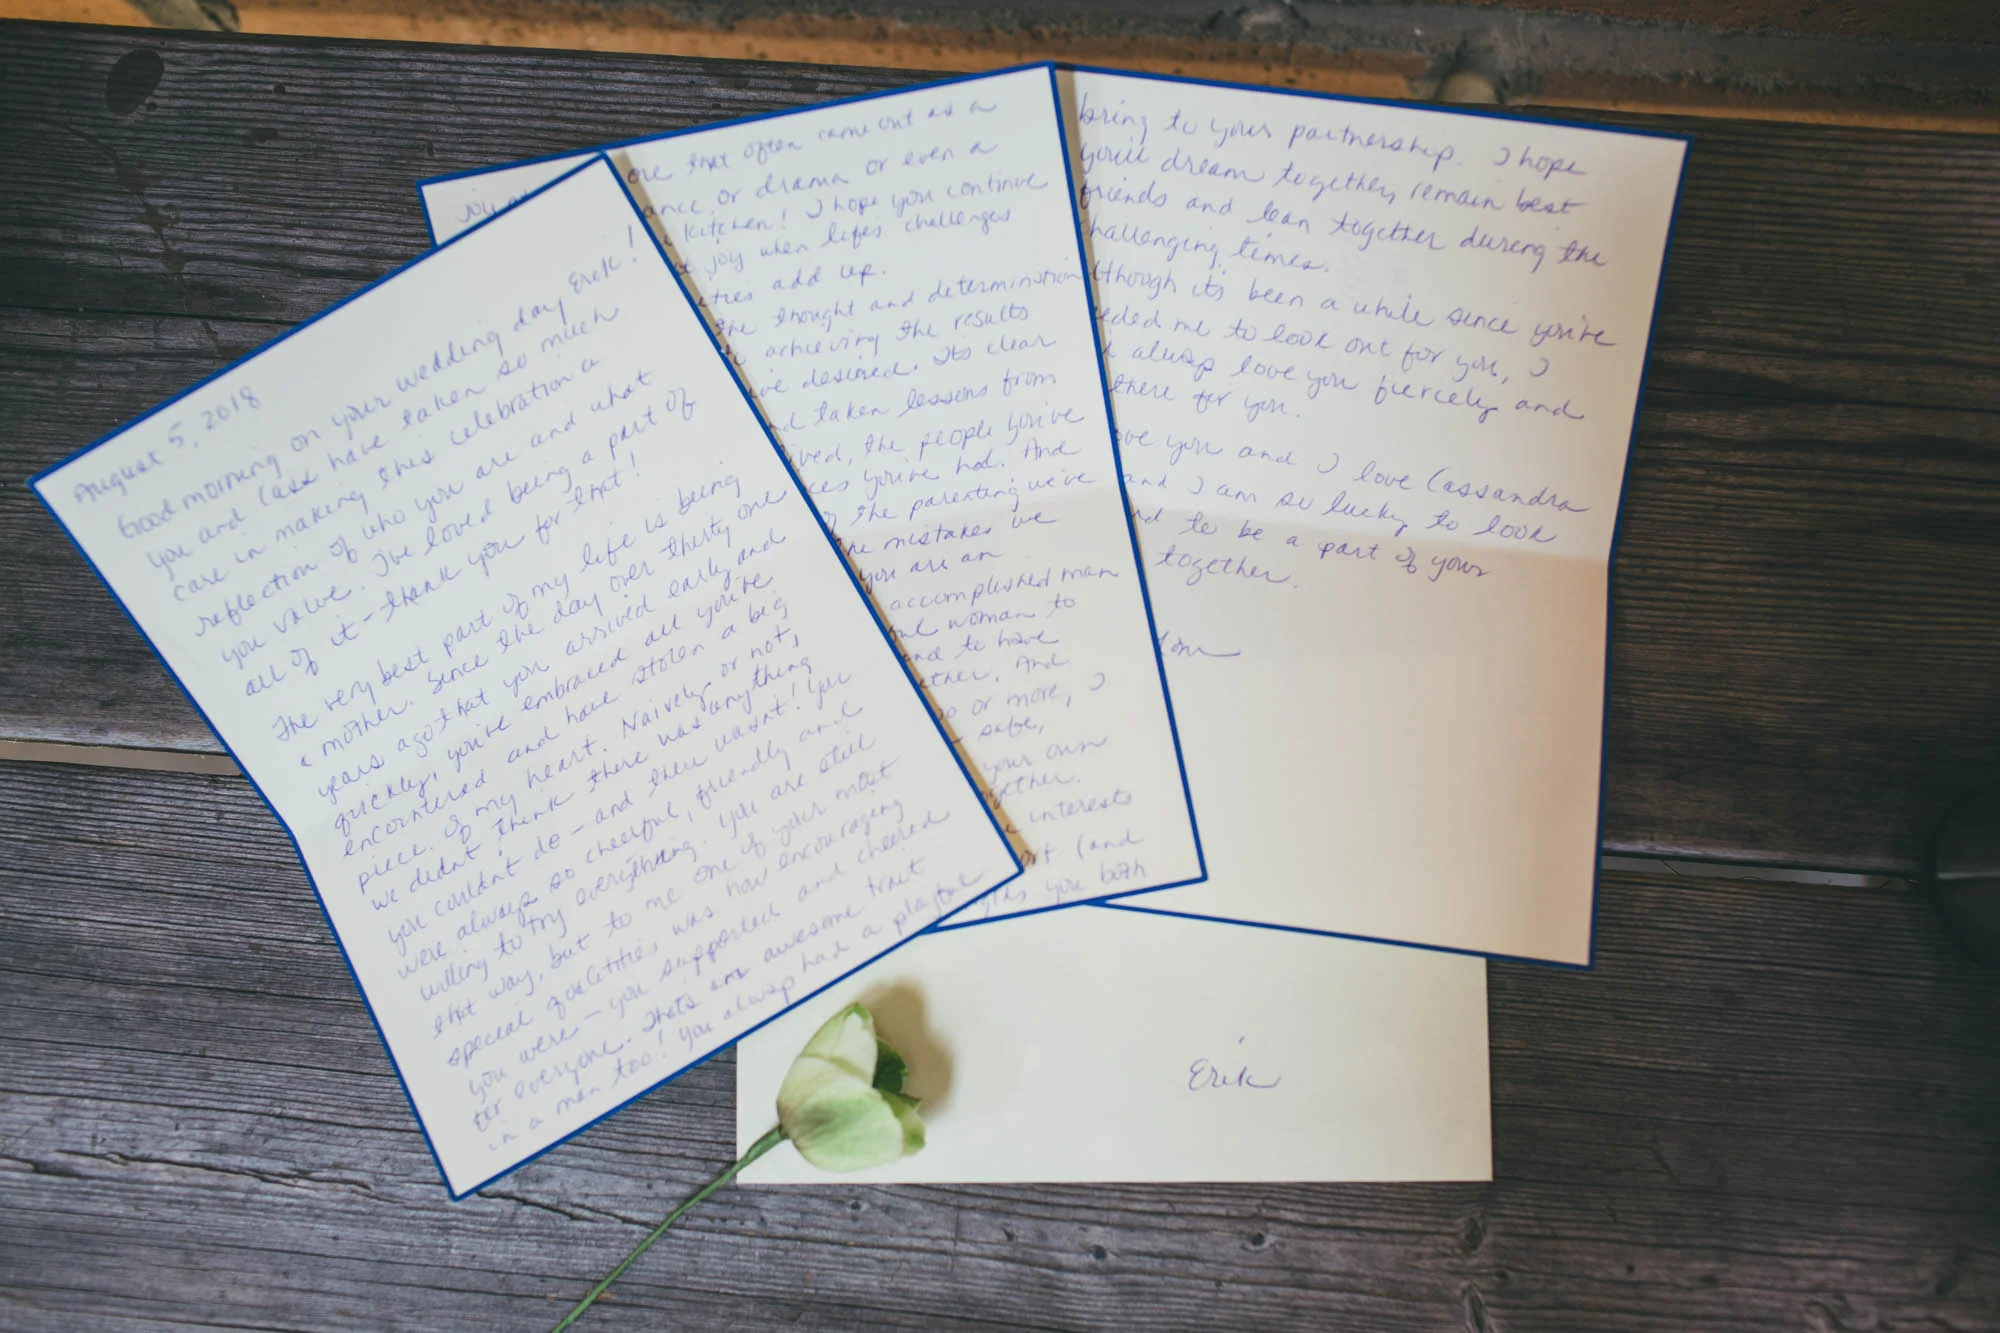 August 5, 2018
Good morning on your wedding day Erik!
you and Cass have taken so much
care in making this celebration a
reflection of who you are and what
you value. I've loved being a part of
all of it - thank you for that!
The very best part of my life is being
a mother. Since the day over thirty one
years ago that you arrived early and
quickly, you've embraced all you're
encountered and have stolen a big
piece of my heart. Naively or not,
we didn't think there was anything
you couldn't do - and there wasn't! You
were always so cheerful, friendly and
willing to try everything. You are still
that way, but to me one of your most
special qualities was how encouraging
you were - you supported and cheered
for everyone. That's an awesome trait
in a man too! You always had a playful
joy
ore that often came out as a
ance or drama or even a
kitchen! I hope you continue
joy when life's challenges
ties add up.
the thought and determination
achieving the results
ve desired. Its clear
d taken lessons from
ved, the people you've
ces you've had. And
the parenting we've
he mistakes we
you are an
accomplished man
woman to
and to have
ether. And
o or more, I
safe,
your own
gether.
interests
ort (and
you both
bring to your partnership. I hope
you'll dream together, remain best
friends and lean together during the
challenging times.
lthough it's been a while since you've
eded me to look out for you, I
always love you fiercely and
there for you.
ove you and I love Cassandra
and I am so lucky to look
nd to be a part of yours
together.
Erik